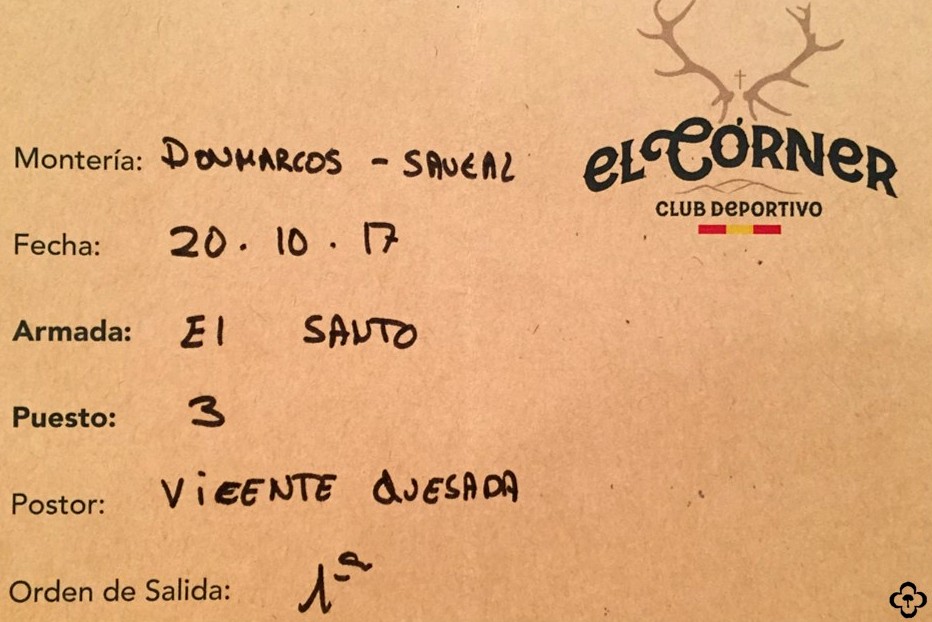 EL CÓRNER
CLUB DEPORTIVO
Montería: DONMARCOS - SAUCAL
Fecha: 20.10.17
Armada: El SANTO
Puesto: 3
Postor: VICENTE QUESADA
Orden de Salida: 1ª